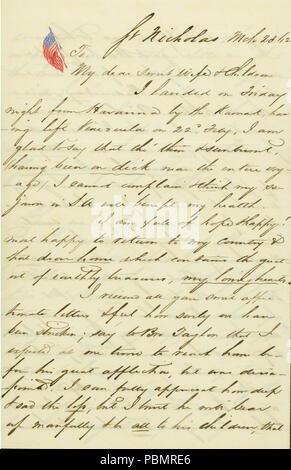 St Nicholas Mch 23/62
To
My dear sweet Wife & Children
I landed on Friday
night from Havanna by the Karnak, hav
ing left Venezuela on 22d Feby. I am
glad to say that tho' thin & sunburnt,
having been on deck near the entire voy
age, I cannot complain & think my so
journ in SA will benefit my health
I am full of hope & happy.
most happy to return to my country &
that dear home which contains the great
est of earthly treasures, my loving hearts.
I received all your some affec
tionate letters & feel how sorely we have
been stricken, say to Bro Taylor that I
expected at one time to reach home be
fore his great affliction but was disap
pointed. I can fully appreciate how deep
& sad the loss, but I trust he will bear
up manfully & be all to his children, that
alamy
PBMRE6